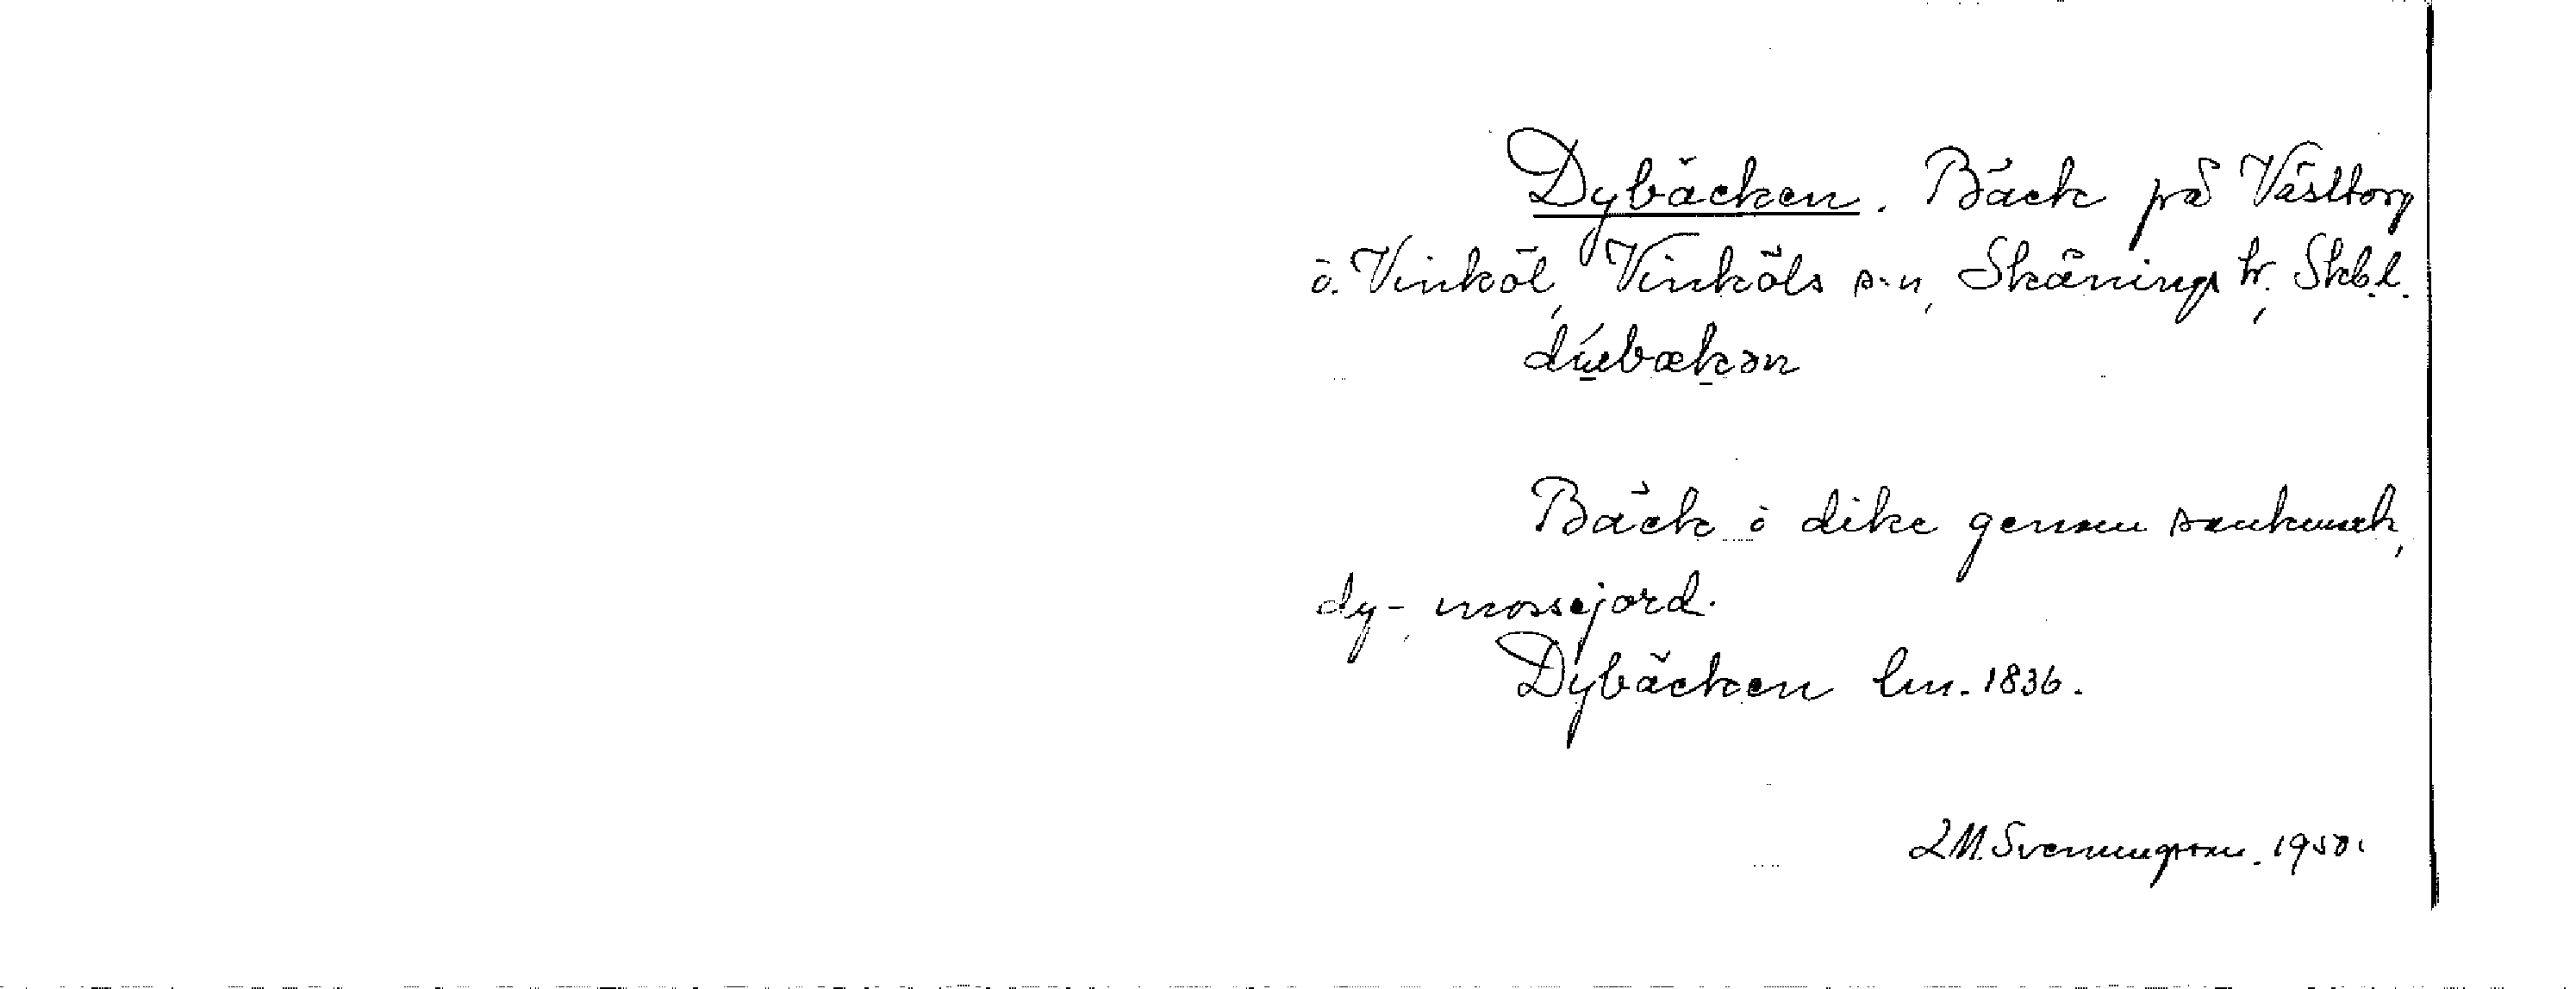 Dybäcken. Bäck på Västtorp
ö. Vinköl, Vinköls s-n, Skånings hr, Skb.l.
Bäck ö dike genom sankmark,
dy-, mossejord.
Dybäcken lm. 1836.
LM. Svenungsson. 1950.